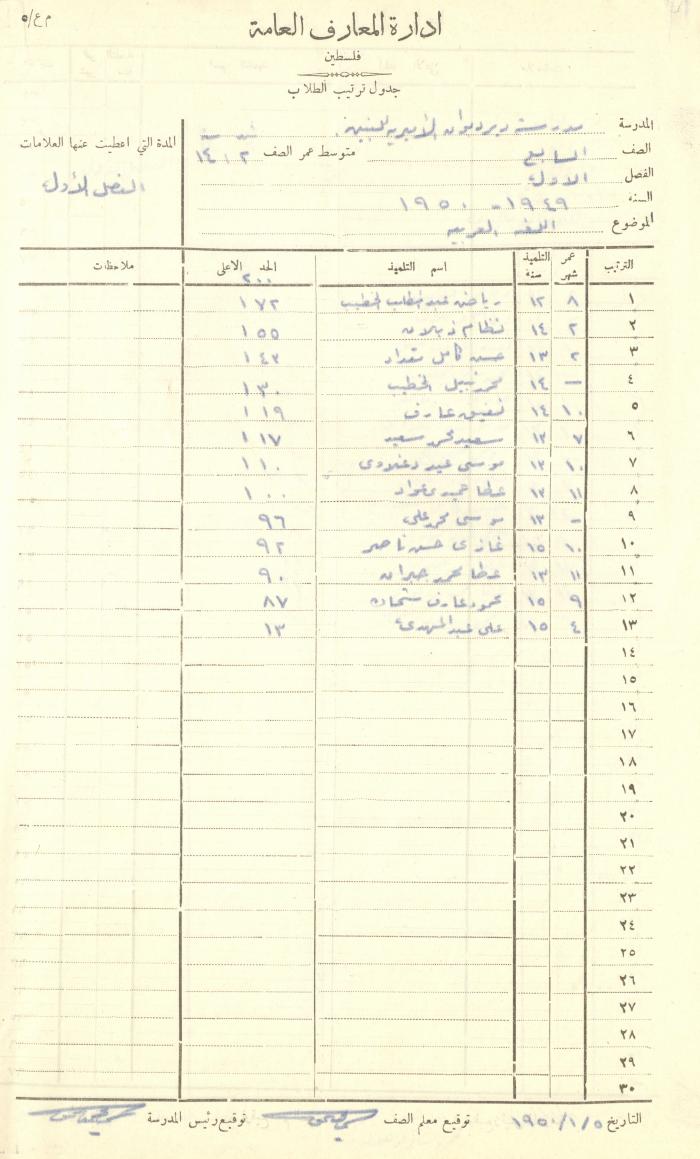 م ع/٥
ادارة المعارف العامة
فلسطين
جدول ترتيب الطلاب
المدرسة مدرسة ديردبوان الأميرية للبنين
الصف السابع متوسط عمر الصف ١٤،٢
الفصل الاول
السنة ١٩٤٩ - ١٩٥٠
الموضوع اللغه العربيه
المدة التي اعطيت عنها العلامات
الفصل الأول
الترتيب عمر التلميذ شهر سنة اسم التلميذ الحد الاعلى ٢٠٠ ملاحظات
١ ٨ ١٢ رياض عبد الخطيب ١٧٢
٢ ٢ ١٤ نظام ذبلان ١٥٥
٣ ٢ ١٣ حسن كامل مقداد ١٤٣
٤ — ١٤ محمد نبيل الخطيب ١٣٠
٥ ١٠ ١٤ شفيق عارف ١١٩
٦ ٧ ١٢ سعيد محمد سعيد ١١٧
٧ ١٠ ١٢ موسى عيد ١١٠
٨ ١١ ١٢ عطا عواد ١٠٠
٩ - ١٣ موسى محمد علي ٩٦
١٠ ١٠ ١٥ غازي حسن ناصر ٩٢
١١ ١١ ١٣ عطا محمد جبران ٩٠
١٢ ٩ ١٥ محمود عارف شحاده ٨٧
١٣ ٤ ١٥ علي عبد المهدي ١٣
١٤
١٥
١٦
١٧
١٨
١٩
٢٠
٢١
٢٢
٢٣
٢٤
٢٥
٢٦
٢٧
٢٨
٢٩
٣٠
التاريخ ١٩٥٠/١/٥ توقيع معلم الصف توقيع رئيس المدرسة